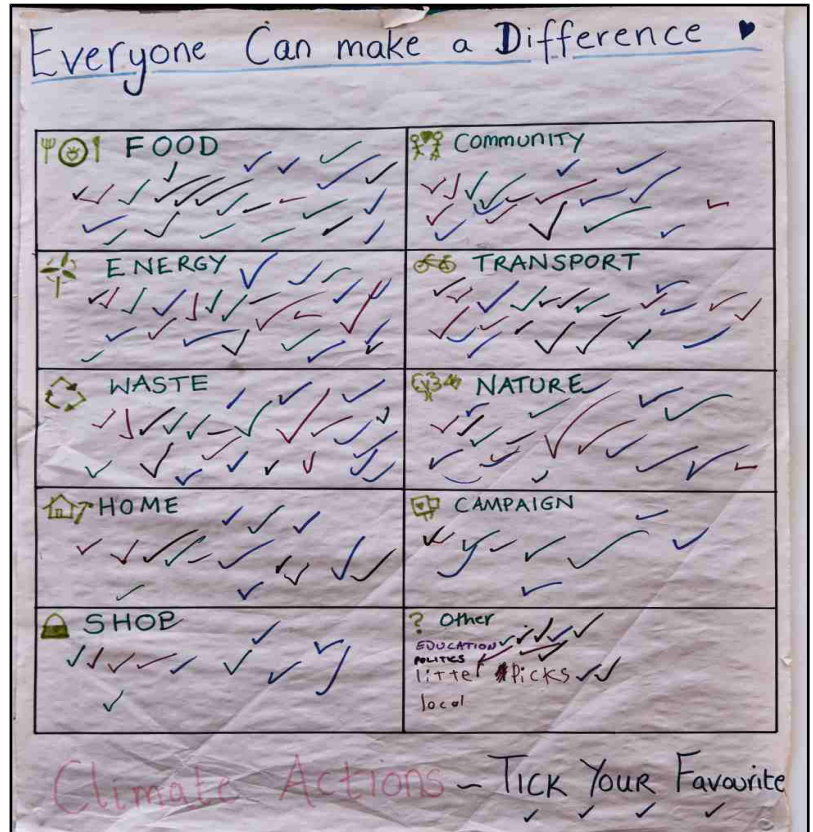 Everyone Can make a Difference
FOOD
Community
ENERGY
TRANSPORT
WASTE
NATURE
HOME
CAMPAIGN
SHOP
? Other
EDUCATION
POLITICS
litter Picks
local
Climate Actions - TICK YOUR Favourite